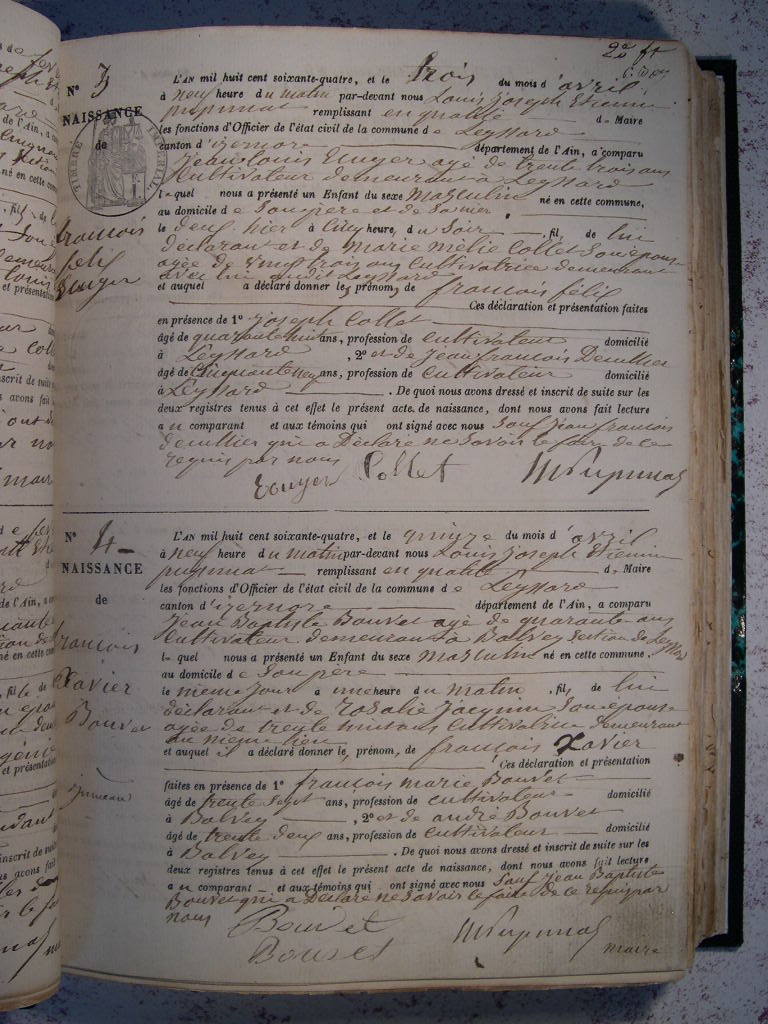 2e ft
N° 3
NAISSANCE
de
françois
félix
Euger
TIMBRE IMPERIAL
L'AN mil huit cent soixante-quatre, et le trois du mois d'avril
à neuf heure du matin par-devant nous Louis Joseph Etienne
pupunat remplissant en qualité de Maire
les fonctions d'Officier de l'état civil de la commune de Leyssard
canton d'izernore département de l'Ain, a comparu
Jean Louis Euger agé de trente trois ans
Cultivateur demeurant à Leyssard
lequel nous a présenté un Enfant du sexe Masculin né en cette commune,
au domicile de Son père et de Sa mère
le deux hier à Cinq heure, du Soir, fil de lui
déclarant et de Marie mélie Collet Son épouse
agée de vingt trois ans Cultivatrice demeurant
avec lui audit Leyssard
et auquel a déclaré donner les prénoms de françois félix
Ces déclaration et présentation faites
en présence de 1° Joseph Collet
âgé de quarante huit ans, profession de Cultivateur domicilié
à Leyssard, 2° et de Jean françois Demillier
âgé de Cinquante neuf ans, profession de Cultivateur domicilié
à Leyssard. De quoi nous avons dressé et inscrit de suite sur les
deux registres tenus à cet effet le présent acte de naissance, dont nous avons fait lecture
au comparant et aux témoins qui ont signé avec nous Sauf Jean françois
demillier qui a Déclaré ne Savoir le faire de ce
requis par nous
Euger Collet Pupunat
N° 4
NAISSANCE
de
françois
Xavier
Bouvet
L'AN mil huit cent soixante-quatre, et le quinze du mois d'avril
à neuf heure du matin par-devant nous Louis Joseph Etienne
pupunat remplissant en qualité de Maire
les fonctions d'Officier de l'état civil de la commune de Leyssard
canton d'izernore département de l'Ain, a comparu
Jean Baptiste Bouvet agé de quarante ans
Cultivateur demeurant à Balvey Section de Leyssard
lequel nous a présenté un Enfant du sexe Masculin né en cette commune,
au domicile de Son père
le même jour à une heure du matin, fils de lui
déclarant et de Rosalie Jacquin Son épouse
agée de trente huit ans Cultivatrice demeurant
au même lieu
et auquel il a déclaré donner les prénom, de françois Xavier
Ces déclaration et présentation
faites en présence de 1° françois marie Bouvet
âgé de trente Sept ans, profession de Cultivateur domicilié
à Balvey, 2° et de andré Bouvet
âgé de trente deux ans, profession de Cultivateur domicilié
à Balvey. De quoi nous avons dressé et inscrit de suite sur les
deux registres tenus à cet effet le présent acte de naissance, dont nous avons fait lecture
au comparant et aux témoins qui ont signé avec nous Sauf Jean Baptiste
Bouvet qui a Déclaré ne Savoir le faire de ce requis par
nous
Bouvet Pupunat
Bouvet maire